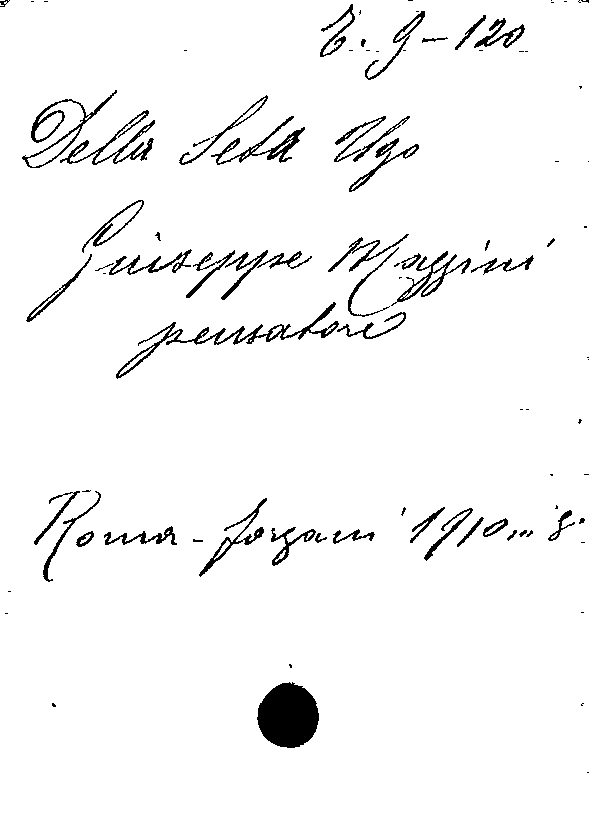 E. 9 - 120
Della Seta Ugo
Giuseppe Mazzini
pensatore
Roma - Forzani 1910... 8.